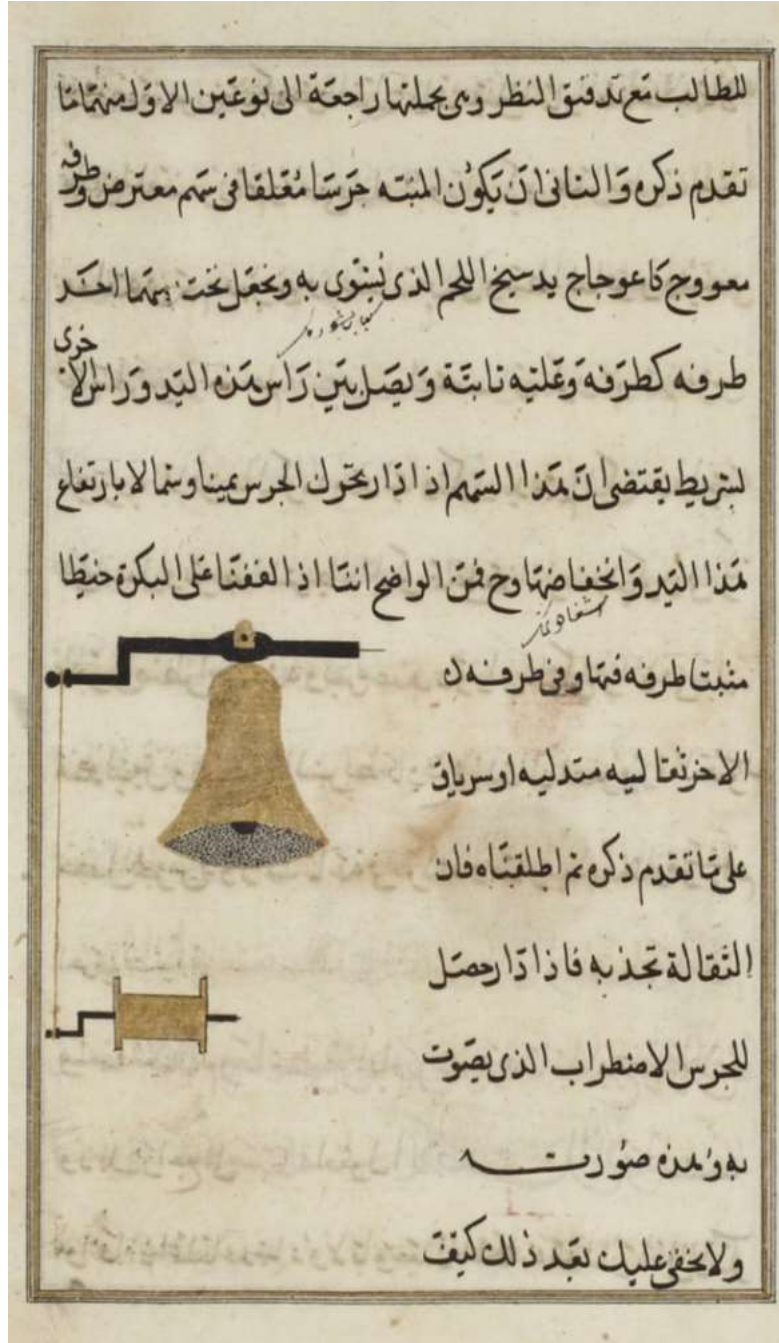 للطالب مع تدقيق النظر وهى بجملتها راجعة الى نوعين الاول منهما ما
تقدم ذكره والثانى ان يكون المنبه جرسا معلقا فى سهم معترض وطرفه
معووج كاعوجاج يد سيخ اللحم الذى يشوى به ونجعل تحت سهما اخر
طرفه كطرفه وعليه ثابتة ويصل بين راس هذه اليد وراس الاخرى
بشريط يقتضى ان هذا السهم اذا دار يحول الجرس يمينا وشمالا بارتفاع
هذا اليد وانخفاضها وح فمن الواضح اننا اذا لففنا على البكرة خيطا
مثبتا طرفه فيها وفى طرفه
الاخر ثقاليه متدليه او سرياق
على ما تقدم ذكره ثم اطلقناه فان
الثقالة تجذبه فاذا دار حصل
للجرس الاضطراب الذى يصوت
به وهذه صورت
ولا يخفى عليك بعد ذلك كيفت